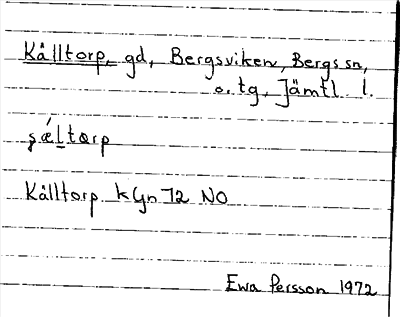 Kålltorp, gd, Bergsviken, Bergs sn,
o. tg, Jämtl. l.
şǽḷtorp
Kålltorp kGn 72 NO
Ewa Persson 1972